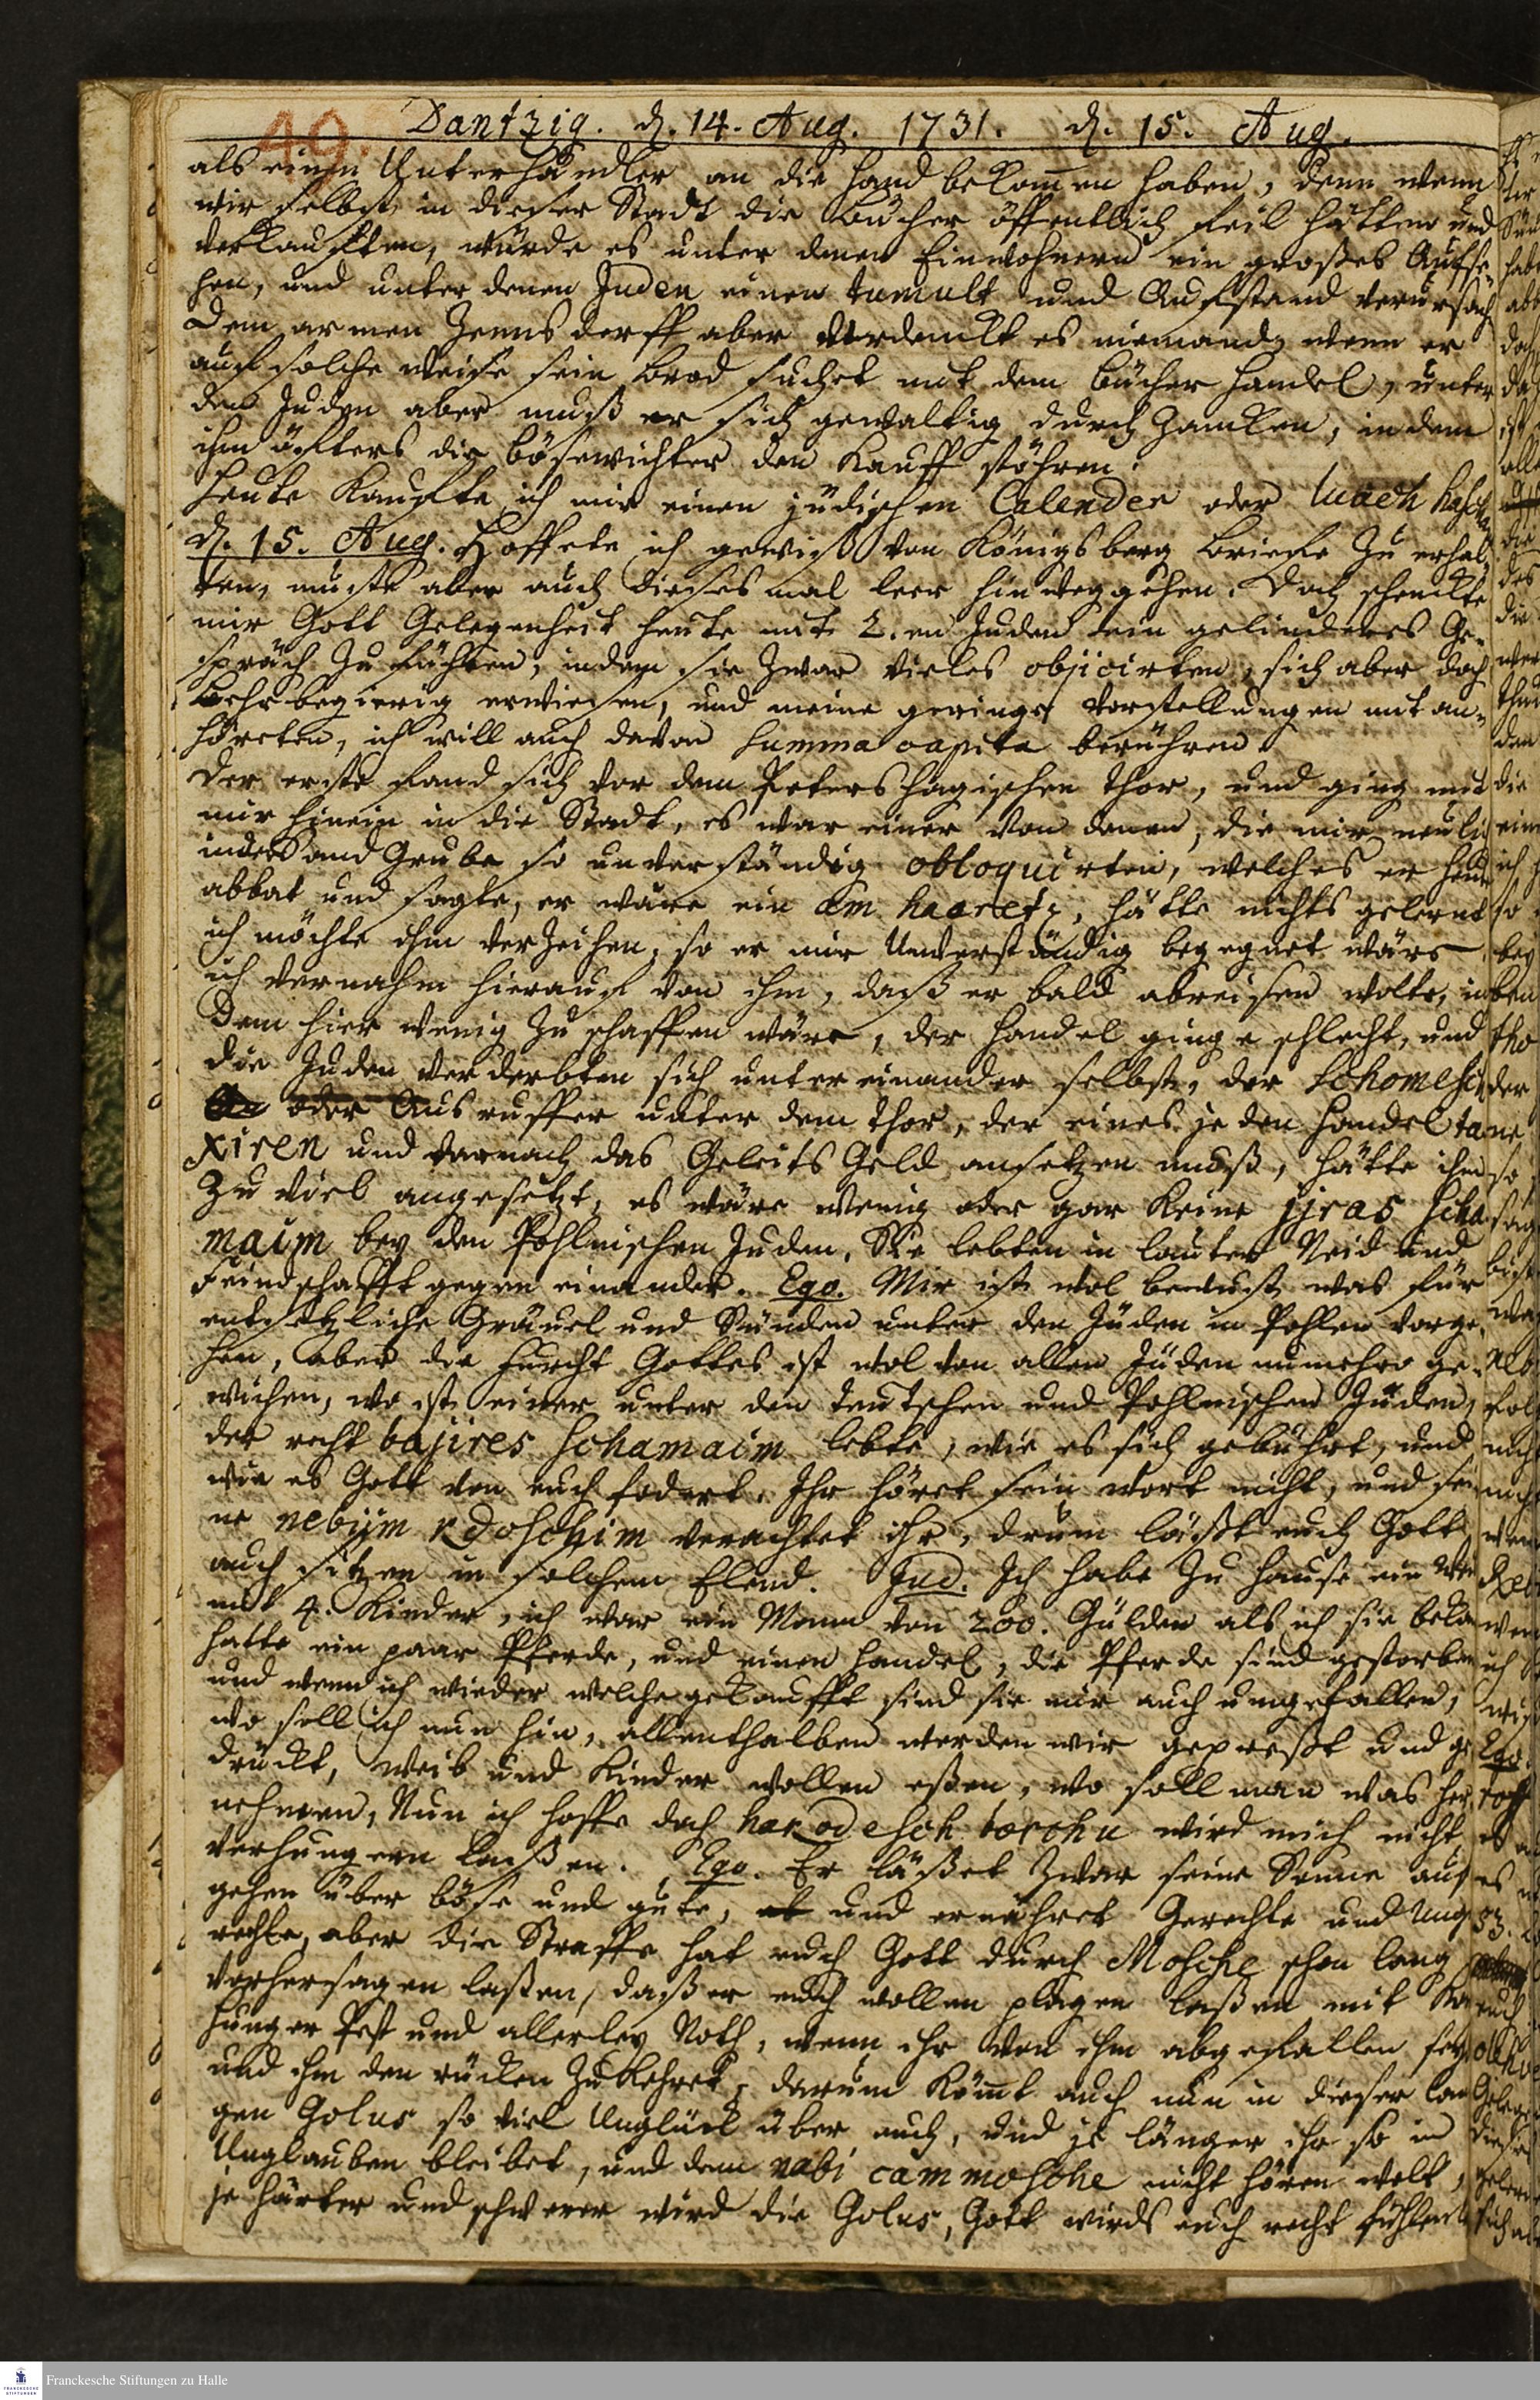 49.
Dantzig. d. 14. Aug. 1731. d. 15. Aug.
als einen Unterhändler an die Hand bekommen haben, denn wenn
wir selbst in dieser Stadt die Bücher öffentlich feil hätten und
verkaufften, würde es unter denen Einwohnern ein großes Aufse-
hen, und unter denen Juden einen tumult und Aufstand verursach
Dem armen Jennsdorff aber verdenckt es niemand, wenn er
auf solche weise sein Brod suchet mit dem Bücher Handel, unter
den Juden aber muß er sich gewaltig durch Zancken, in dem
ihm öffters die bösewichter den Kauff stöhren.
Heute Kauffte ich mir einen jüdischen Calender oder luach hasch
d. 15. Aug. Hoffete ich gewiß von Königsberg Briefe zu erhal-
ten, muste aber auch dieses mal leer hinweggehen. Doch schenckte
mir Gott Gelegenheit heute mit 2.en Juden ein gelinderes Ge-
spräch zu führen, indem sie zwar vieles objicirten, sich aber doch
Lehrbegierig erwiesen, und meine geringe Vorstellungen mit an-
höreten, ich will auch davon Summa capita berühren.
Der erste fand sich vor dem Petershagischen Thor, und ging mit
mir hinein in die Stadt, es war einer von denen, die mir neulich
in der Sand Grube so unverständig obloquirten, welches er heute
abbat und sagte, er wäre ein am haaretz, hätte nichts gelernt
ich möchte ihm verzeihen, so er mir Unverständig begegnet wäre
ich vernahm hierauf von ihm, daß er bald abreisen wolte, in
dem hier wenig zu schaffen wäre, der Handel ginge schlecht, und
die Juden verderbten sich untereinander selbst, der Schomesch
oder Ausruffer unter dem Thor, der eines jeden Handel ta
xiren und darnach das Geleits Geld ansetzen muß, hätte ihm
zu viel angesetzt, es wäre wenig oder gar keine jiras Scha
maim bey den Pohlnischen Juden, Sie lebten in lauter Neid und
Feindschafft gegen einander. Ego. Mir ist wol bewust was für
entsetzliche Gräuel und Sünden unter den Jüden in Pohlen vorge-
hen, aber die Furcht Gottes ist wol von allen Jüden numehro ge-
wichen, wo ist einer unter den teutschen und Pohlnischen Jüden,
der recht bajires Schamaim lebte, wie es sich gebührt, und
wie es Gott von euch fodert. Ihr höret sein Wort nicht, und sei
ne nebiim kdoschim verachtet ihr, drum läßt euch Gott
auch sitzen in solchem Elend. Jud. Ich habe zu Hause ein Wei
mit 4. Kinder, ich war ein Mann von 200. Gülden als ich sie beka
hatte ein paar Pferde, und einen Handel, die Pferde sind gestorben
und wenn ich wieder welche gekaufft sind sie mir auch umgefallen,
wo soll ich nun hin, allenthalben werden wir gepreßt und ge
drückt, Weib und Kinder wollen eßen, wo soll man was her
nehmen, Nun ich hoffe doch hakodesch borchu wird mich nicht
verhungern laßen. Ego. Er läßet zwar seine Sonne auf
gehen über böse und gute, und ernähret Gerechte und Unge
rechte, aber die Straffe hat euch Gott durch Mosche schon lang
vorhersagen laßen, daß er euch wollen plagen laßen mit
Hunger Pest und allerley Noth, wenn ihr von ihm abgefallen sey
und ihm den rücken zukehret, darum kömmt auch nun in dieser lan
gen Golus so viel Unglück über euch, und je länger ihr so in
Unglauben bleibet, und dem nabi cammosche nicht hören wolt,
je härter und schwerer wird die Golus, Gott wirds euch recht fühlen
Franckesche Stiftungen zu Halle